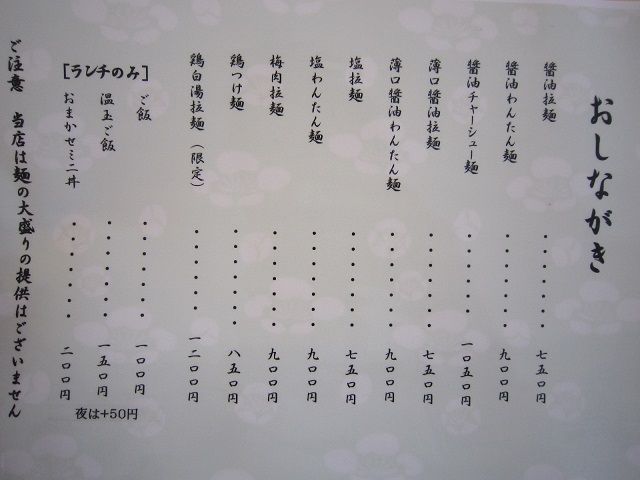 おしながき
醤油拉麺・・・・・・・七五〇円
醤油わんたん麺・・・・・・・九〇〇円
醤油チャーシュー麺・・・・・・・一〇五〇円
薄口醤油拉麺・・・・・・・七五〇円
薄口醤油わんたん麺・・・・・・・九〇〇円
塩拉麺・・・・・・・七五〇円
塩わんたん麺・・・・・・・九〇〇円
梅肉拉麺・・・・・・・九〇〇円
鶏つけ麺・・・・・・・八五〇円
鶏白湯拉麺(限定)・・・・・・・一二〇〇円
[ランチのみ]
ご飯・・・・・・・一〇〇円
温玉ご飯・・・・・・・一五〇円
おまかせミニ丼・・・・・・・二〇〇円
夜は+50円
ご注意 当店は麺の大盛りの提供はございません